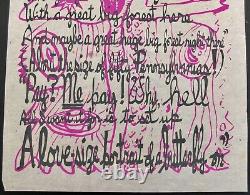 With a great big forest here
And maybe a great huge big forest right there
About the size of fifty Pennsylvanias!)
Pay? Me pay! Why, hell
All I want is to set up
A love-size portrait of a Butterfly